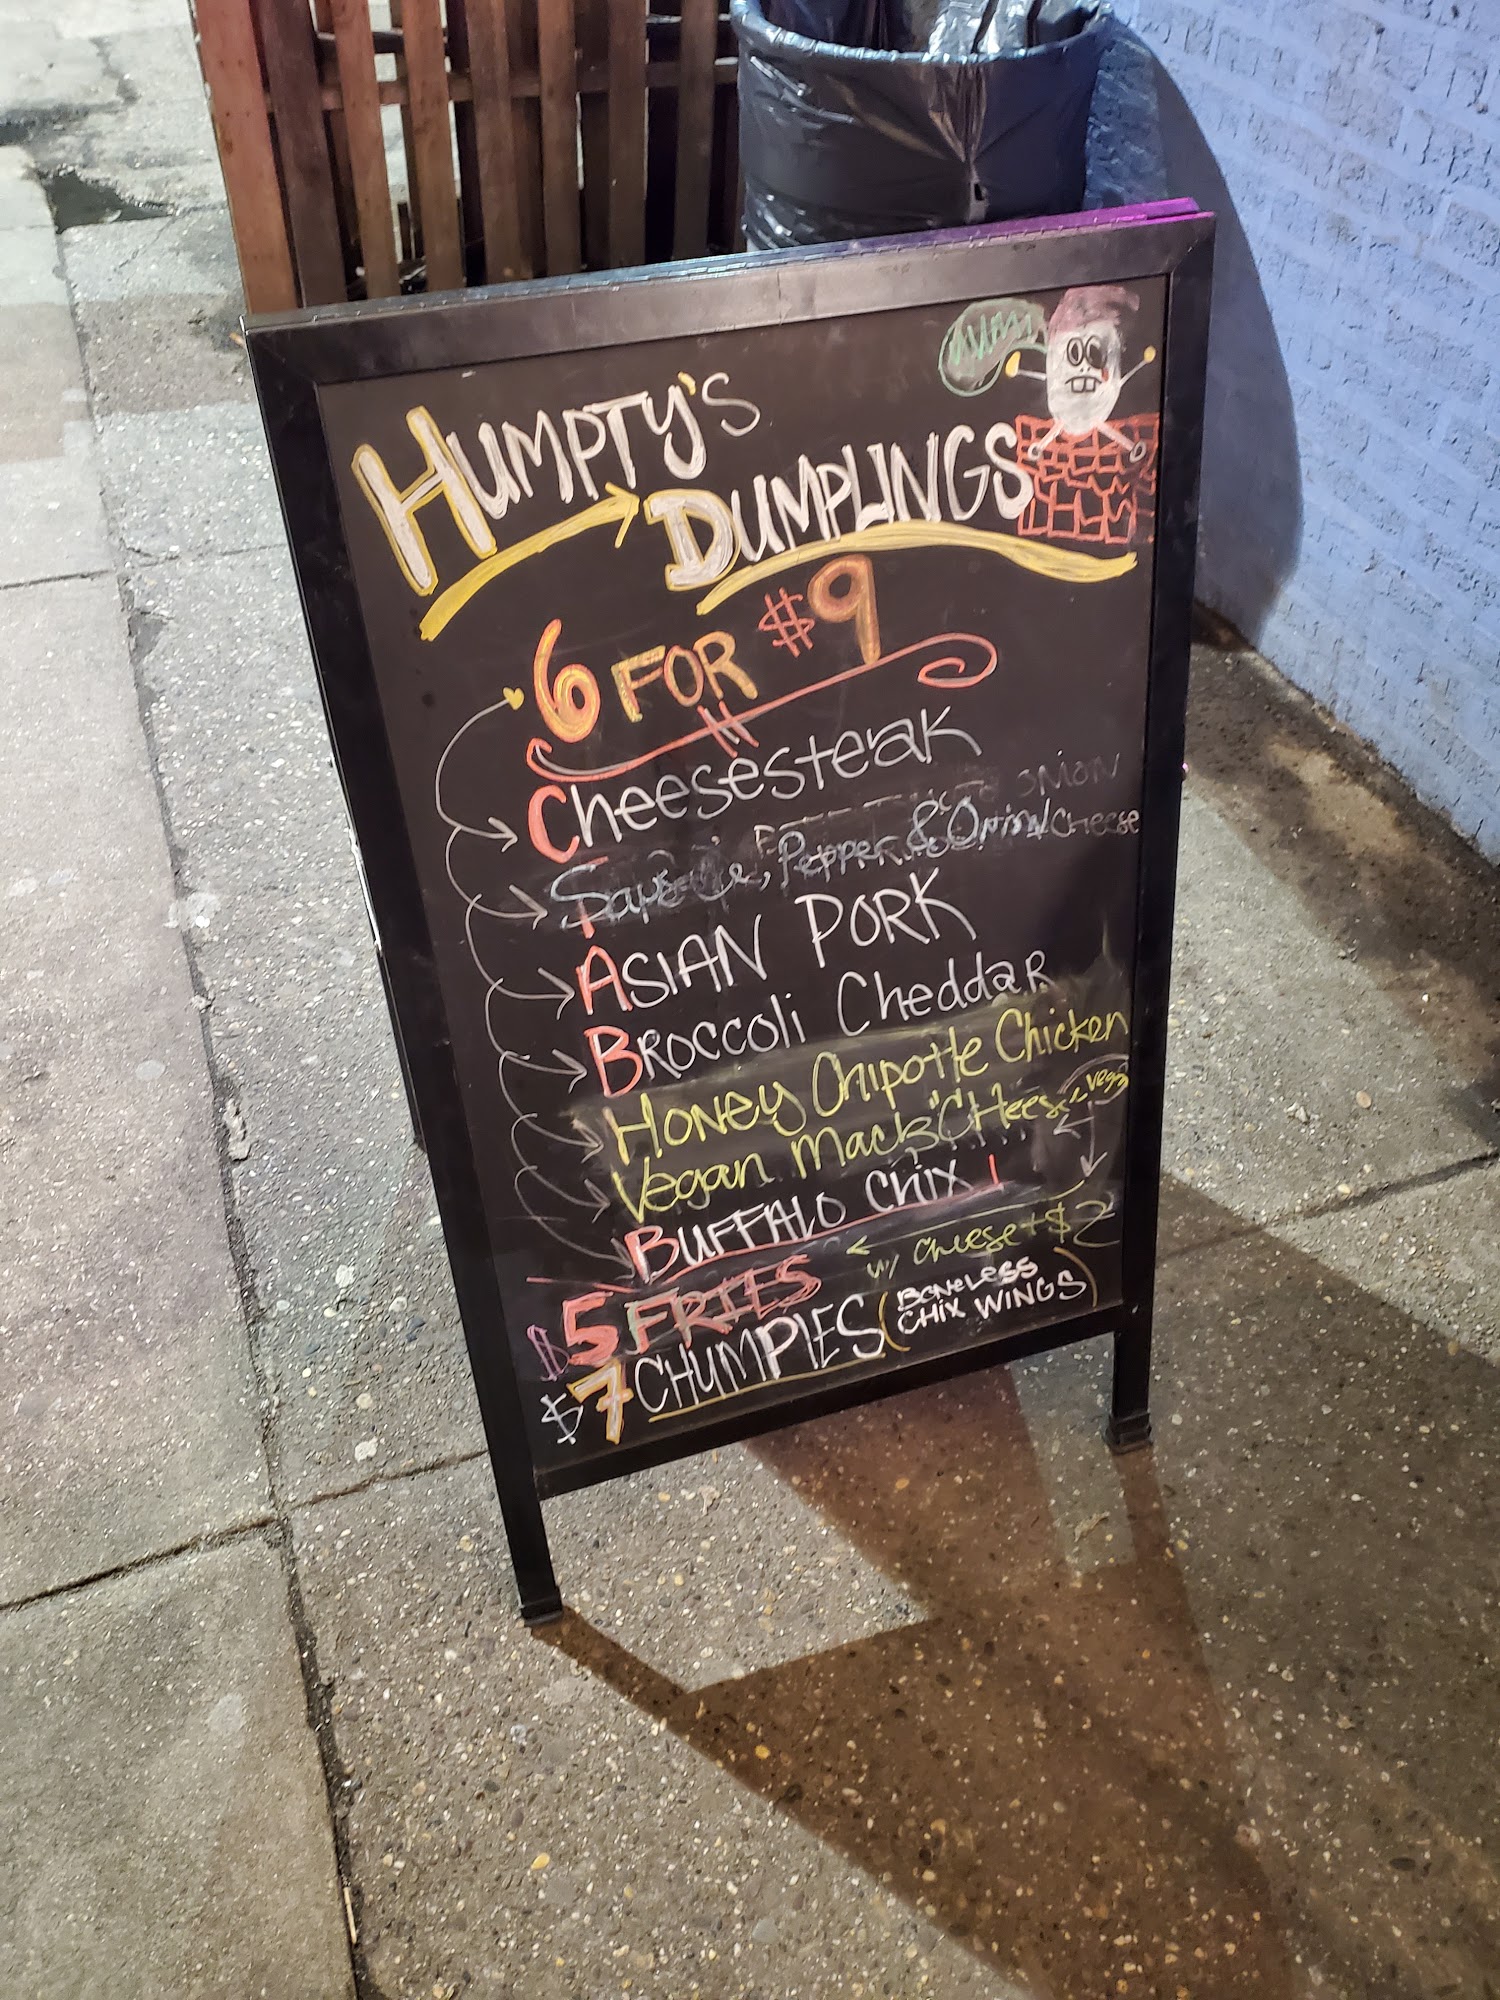 YUM!
HUMPTY'S
DUMPLINGS
6 FOR $9
Cheesesteak
Sausage, Pepper & Onion/Cheese
ASIAN PORK
BROCCOLI Cheddar
Honey Chipotle Chicken
Vegan Mac & "CHeese"
BUFFALO CHIX!
$5 FRIES w/ cheese + $2
$7 CHUMPIES (BONELESS
CHIX WINGS)